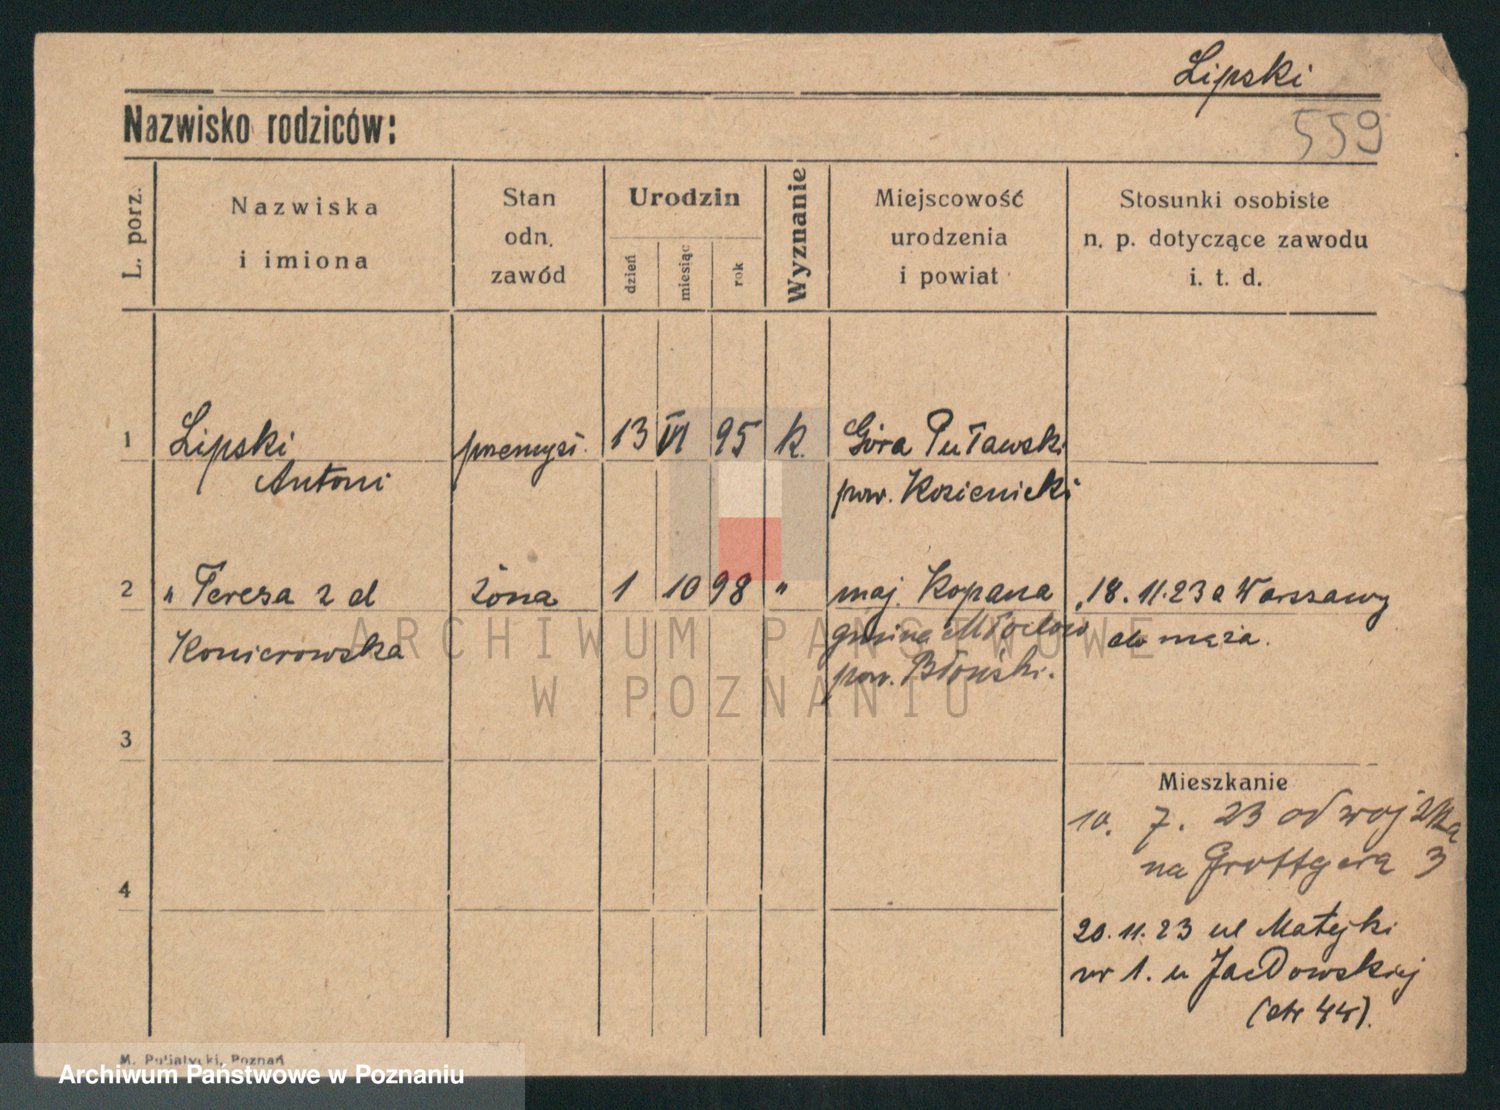 Lipski
Nazwisko rodziców:
559
L. porz.
Nazwiska
i imiona
Stan
odn.
zawód
Urodzin
dzień
miesiąc
rok
Wyznanie
Miejscowość
urodzenia
i powiat
Stosunki osobiste
n. p. dotyczące zawodu
i. t. d.
1 Lipski przemysł. 13 VI 95 k. Góra Puławski
Antoni pow. Kozienicki
2 " Teresa z d żona 1 10 98 " maj. Kopana 18.11.23 a Warszawy
Konierowska gmina Młochow do męża.
pow. Błoński.
ARCHIWUM PAŃSTWOWE
W POZNANIU
3
Mieszkanie
10. 7. 23 od wojska
na Grottgera 3
4
20.11.23 ul Matejki
nr 1. u
M. Putiatycki, Poznań
Archiwum Państwowe w Poznaniu